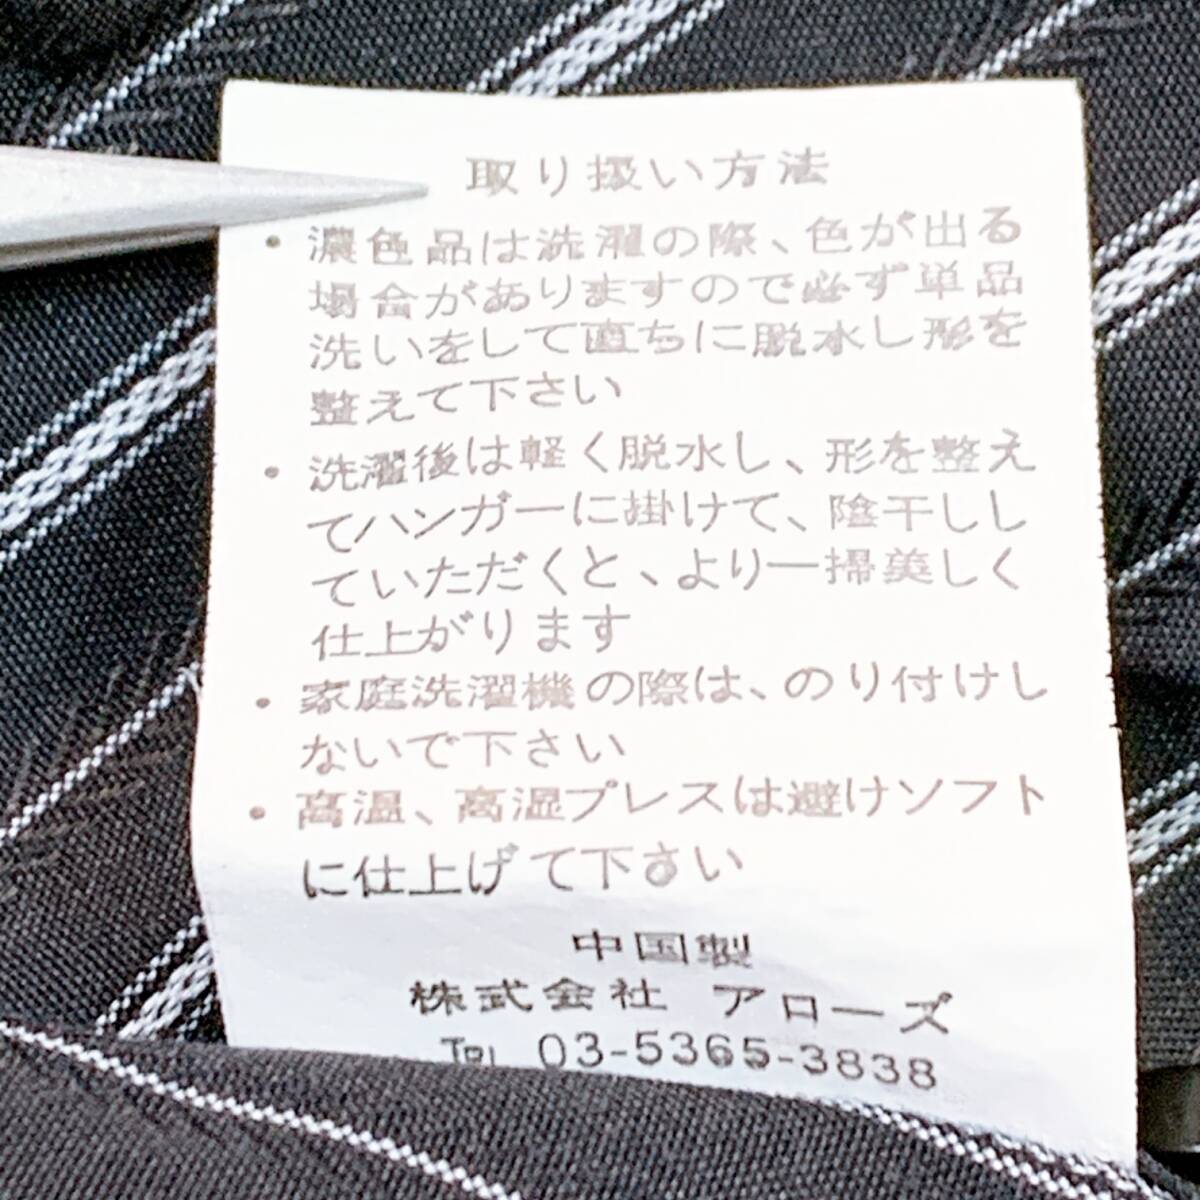 取り扱い方法
・濃色品は洗濯の際、色が出る
場合がありますので必ず単品
洗いをして直ちに脱水し形を
整えて下さい
・洗濯後は軽く脱水し、形を整え
てハンガーに掛けて、陰干しし
ていただくと、より一掃美しく
仕上がります
・家庭洗濯機の際は、のり付けし
ないで下さい
・高温、高湿プレスは避けソフト
に仕上げて下さい
中国製
株式会社 アローズ
TEL 03-5365-3838